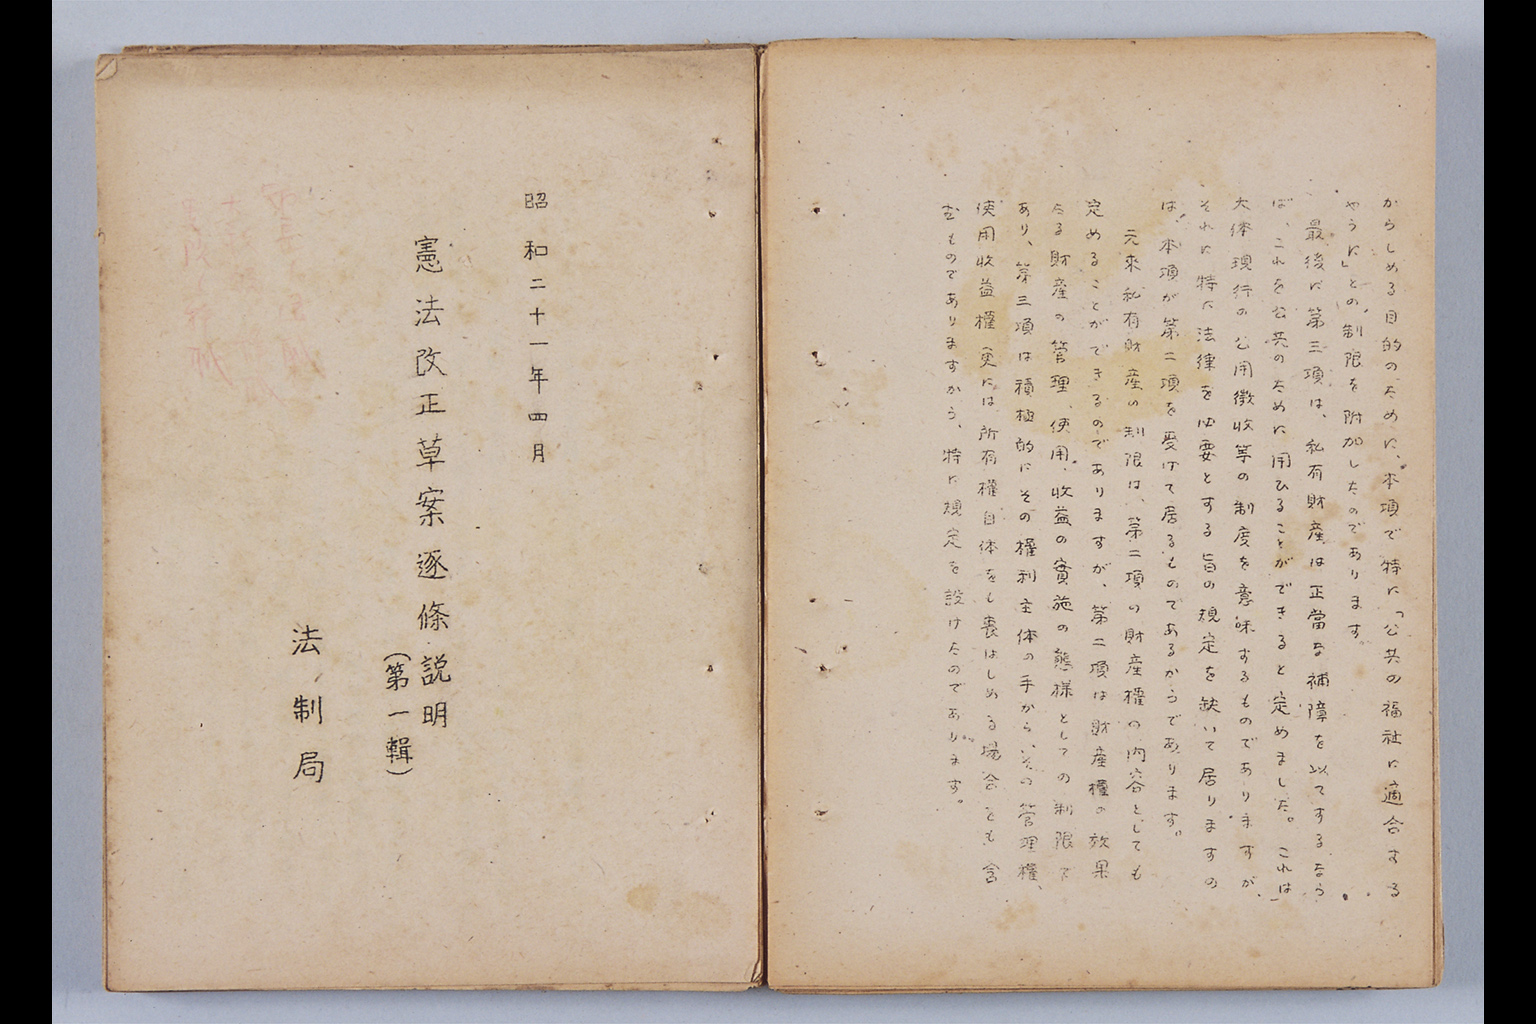 からしめる目的のために、本項で特に「公共の福祉に適合する
やうに」との制限を附加したのであります
最後に第三項は、私有財産は正當な補障を以てするなら
ば、これを公共のために用ひることができると定めました。これは
大体現行の公用徴收等の制度を意味するものでありますが、
それに特に法律を必要とする旨の規定を缺いて居りますの
は、本項が第二項を受けて居るものであるからであります。
元來私有財産の制限は、第二項の財産權の内容としても
定めることができるのでありますが、第二項は財産權の效果
たる財産の管理、使用、收益の實施の態様としての制限で
あり、第三項は積極的にその權利主体の手から、その管理權、
使用收益權更には所有權自体をも喪はしめる場合をも含
むものでありますから、特に規定を設けたのであります。
昭和二十一年四月
憲法改正草案逐條説明
（第一輯）
法制局